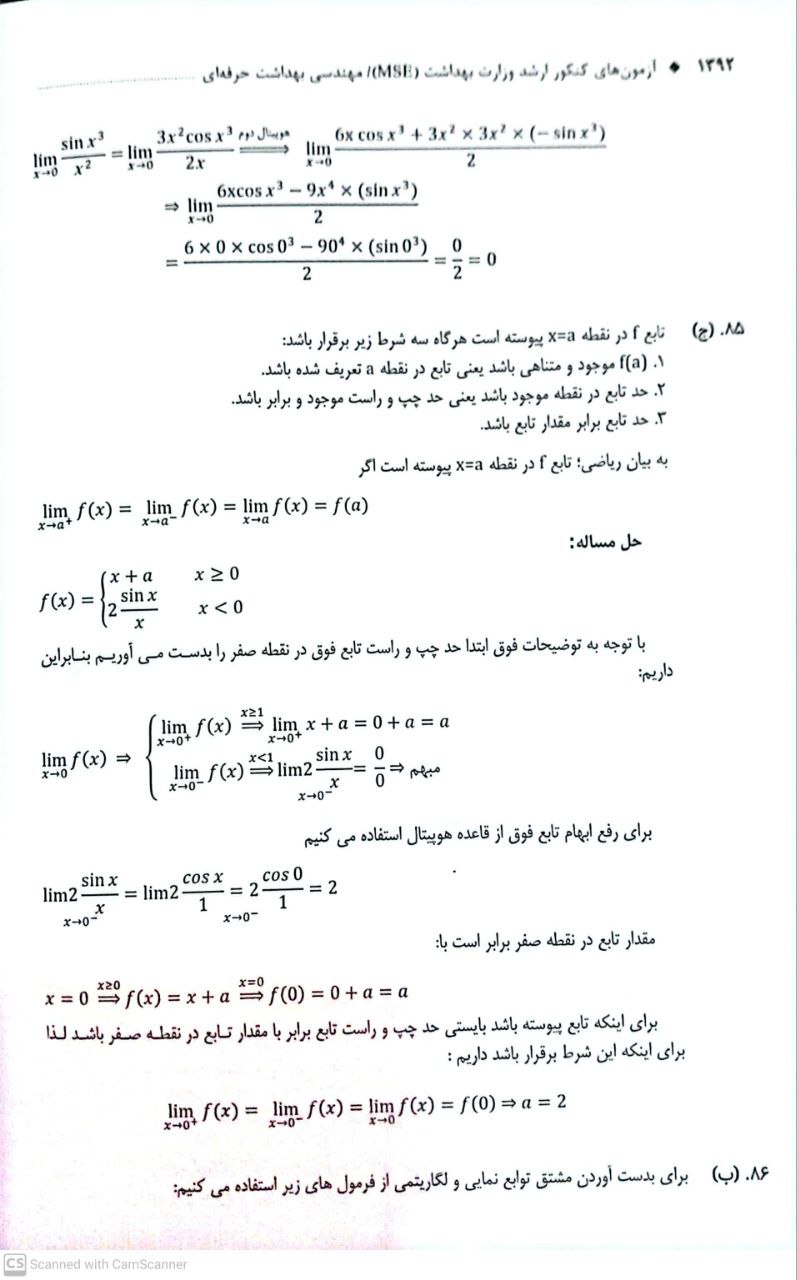 ۱۳۹۲ ◆ آزمون‌های کنکور ارشد وزارت بهداشت (MSE)/ مهندسی بهداشت حرفه‌ای
lim x→0 sin x³ / x² = lim x→0 3x² cos x³ / 2x ⟹ هوپیتال دوم lim x→0 (6x cos x³ + 3x² × 3x² × (− sin x³)) / 2
⇒ lim x→0 (6xcos x³ − 9x⁴ × (sin x³)) / 2
= (6 × 0 × cos 0³ − 90⁴ × (sin 0³)) / 2 = 0/2 = 0
۸۵. (ج) تابع f در نقطه x=a پیوسته است هرگاه سه شرط زیر برقرار باشد:
۱. f(a) موجود و متناهی باشد یعنی تابع در نقطه a تعریف شده باشد.
۲. حد تابع در نقطه موجود باشد یعنی حد چپ و راست موجود و برابر باشد.
۳. حد تابع برابر مقدار تابع باشد.
به بیان ریاضی؛ تابع f در نقطه x=a پیوسته است اگر
lim x→a⁺ f(x) = lim x→a⁻ f(x) = lim x→a f(x) = f(a)
حل مساله:
f(x) = { x + a x ≥ 0
2 sin x / x x < 0
با توجه به توضیحات فوق ابتدا حد چپ و راست تابع فوق در نقطه صفر را بدست می آوریم بنابراین
داریم:
lim x→0 f(x) ⇒ { lim x→0⁺ f(x) ⟹ x≥1 lim x→0⁺ x + a = 0 + a = a
lim x→0⁻ f(x) ⟹ x<1 lim x→0⁻ 2 sin x / x = 0/0 ⇒ مبهم
برای رفع ابهام تابع فوق از قاعده هوپیتال استفاده می کنیم
lim x→0⁻ 2 sin x / x = lim x→0⁻ 2 cos x / 1 = 2 cos 0 / 1 = 2
مقدار تابع در نقطه صفر برابر است با:
x = 0 ⟹ x≥0 f(x) = x + a ⟹ x=0 f(0) = 0 + a = a
برای اینکه تابع پیوسته باشد بایستی حد چپ و راست تابع برابر با مقدار تابع در نقطه صفر باشد لذا
برای اینکه این شرط برقرار باشد داریم :
lim x→0⁺ f(x) = lim x→0⁻ f(x) = lim x→0 f(x) = f(0) ⇒ a = 2
۸۶. (ب) برای بدست آوردن مشتق توابع نمایی و لگاریتمی از فرمول های زیر استفاده می کنیم:
CS Scanned with CamScanner